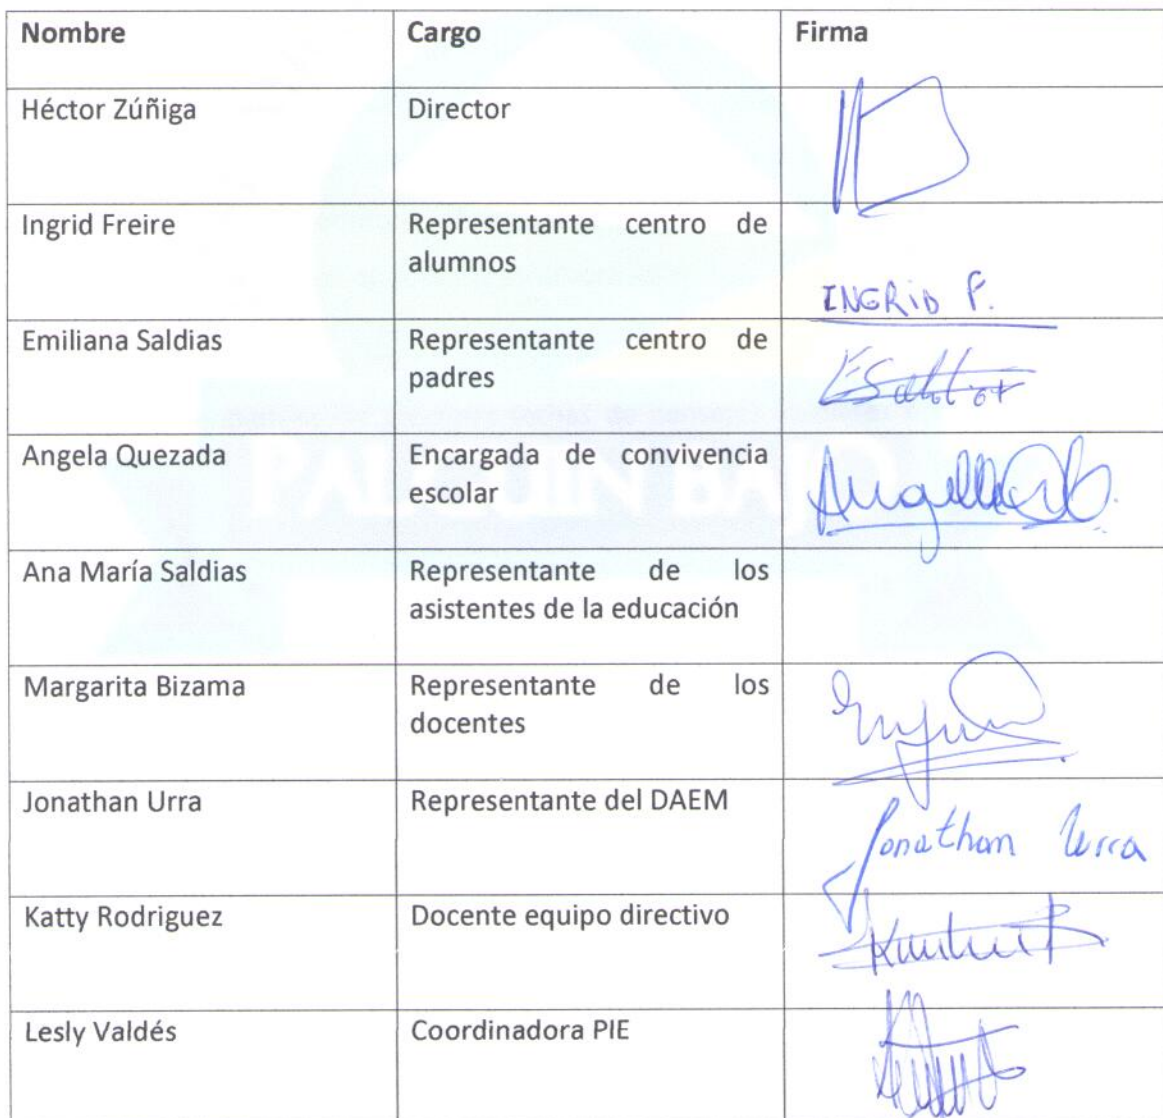 Nombre Cargo Firma
Héctor Zúñiga Director
Ingrid Freire Representante centro de
alumnos
INGRID F.
Emiliana Saldias Representante centro de
padres
Angela Quezada Encargada de convivencia
escolar
Ana María Saldias Representante de los
asistentes de la educación
Margarita Bizama Representante de los
docentes
Jonathan Urra Representante del DAEM
Jonathan Urra
Katty Rodriguez Docente equipo directivo
Lesly Valdés Coordinadora PIE